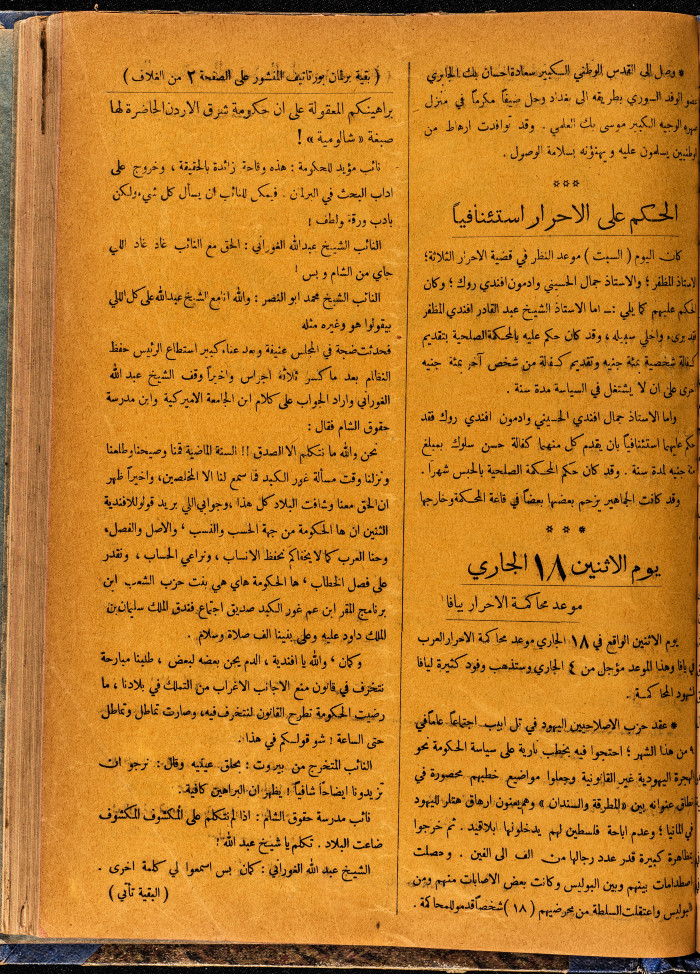 * وصل الى القدس الوطني السكبير سعادة احسان بك الجابري
الوفد السوري بطريقه الى بغداد وحل ضيفاً مكرماً في منزل
الوجيه الكبير موسى بك العلمي . وقد توافدت ارهاط من
يسلمون عليه ويهنؤنه بسلامة الوصول .
***
الحكم على الاحرار استئنافياً
كان اليوم ( السبت ) موعد النظر في قضية الاحرار الثلاثة ؛
المظفر ؛ والاستاذ جمال الحسيني وادمون افندي روك ؛ وكان
الحكم عليهم كما يلي :ـ اما الاستاذ الشيخ عبد القادر افندي المظفر
فقد برىء واخلي سبيله ، وقد كان حكم عليه بالمحكمة الصلحية بتقديم
كفالة شخصية بمئة جنيه وتقديم كفالة من شخص آخر بمئة جنيه
اخرى على ان لا يشتغل في السياسة مدة سنة .
واما الاستاذ جمال افندي الحسيني وادمون افندي روك فقد
حكم عليهما استئنافياً بان يقدم كل منهما كفالة حسن سلوك بمبلغ
جنيه لمدة سنة . وقد كان حكم المحكمة الصلحية بالحبس شهراً .
وقد كانت الجماهير يزحم بعضها بعضاً في قاعة المحكمة وخارجها
* * *
يوم الاثنين ١٨ الجاري
موعد محاكمة الاحرار بيافا
يوم الاثنين الواقع في ١٨ الجاري موعد محاكمة الاحرار العرب
في يافا وهذا الموعد مؤجل من ٤ الجاري وستذهب وفود كثيرة ليافا
لشهود المحاكمة .
* عقد حزب الاصلاحيين اليهود في تل ابيب اجتماعاً عاماً في
٩ من هذا الشهر ؛ احتجوا فيه بخطب نارية على سياسة الحكومة نحو
الهجرة اليهودية غير القانونية وجعلوا مواضيع خطبهم محصورة في
نطاق عنوانه بين «المطرقة والسندان» وهم يعنون ارهاق هتلر لليهود
في المانيا ؛ وعدم اباحة فلسطين لهم يدخلونها بلا قيد . ثم خرجوا
بمظاهرة كبيرة قدر عدد رجالها من الف الى الفين . وحصلت
اصطدامات بينهم وبين البوليس وكانت بعض الاصابات منهم ومن
البوليس واعتقلت السلطة من محرضيهم ( ١٨ ) شخصاً قدموا للمحاكمة .
( بقية برلمان بوزتانيف المنشور على الصفحة ٢ من الغلاف )
براهينكم المعقولة على ان حكومة شرق الاردن الحاضرة لها
صبغة « شالومية » !
نائب مؤيد للحكومة : هذه وقاحة زائدة بالحقيقة ، وخروج على
اداب البحث في البرلمان . فيمكن للنائب ان يسأل كل شيء ولكن
بادب ورقة ولطف !
النائب الشيخ عبد الله الغوراني : الحق مع النائب غاد غاد اللي
جاي من الشام و بس !
النائب الشيخ محمد ابو النصر : والله انا مع الشيخ عبدالله على كل اللي
بيقولوا هو وغيره مثله
فحدثت ضجة في المجلس عنيفة وبعد عناء كبير استطاع الرئيس حفظ
النظام بعد ما كسر ثلاثة اجراس واخيراً وقف الشيخ عبد الله
الغوراني واراد الجواب على كلام ابن الجامعة الاميركية وابن مدرسة
حقوق الشام فقال :
نحن والله ما نتكلم الا الصدق !! السنة الماضية قمنا وصيحنا وطلعنا
ونزلنا وقت مسألة غور الكبد فما سمع لنا الا المخلصين ، واخيراً ظهر
ان الحق معنا وشافت البلاد كل هذا ، وجوابي اللي بريد قولوا للافندية
الثنين ان ها الحكومة من جهة الحسب والنسب ، والاصل والفصل ،
وحنا العرب كما لا يخفاكم نحفظ الانساب ، ونراعي الحساب ، ونقدر
على فصل الخطاب ، ها الحكومة هاي هي بنت حزب الشعب ابن
برنامج المقر ابن عم غور الكبد صديق اجتماع فندق الملك سليمان بن
الملك داود عليه وعلى نبينا الف صلاة وسلام .
وكمان ، والله يا افندية ، الدم يحن بعضه لبعض ، طلبنا مبارحة
نتخرف في قانون منع الاجانب الاغراب من التملك في بلادنا ، ما
رضيت الحكومة تطرح القانون لنتخرف فيه ، وصارت تماطل وتماطل
حتى الساعة ! شو قولكم في هذا .
النائب المتخرج من بيروت : بحلق عينيه وقال : نرجو ان
تزيدونا ايضاحاً شافياً ! يظهر ان البراهين كافية .
نائب مدرسة حقوق الشام : اذا لم نتكلم على المكشوف المكشوف
ضاعت البلاد . تكلم يا شيخ عبد الله !
الشيخ عبد الله الغوراني : كمان بس اسمعوا لي كلمة اخرى .
( البقية تأتي )